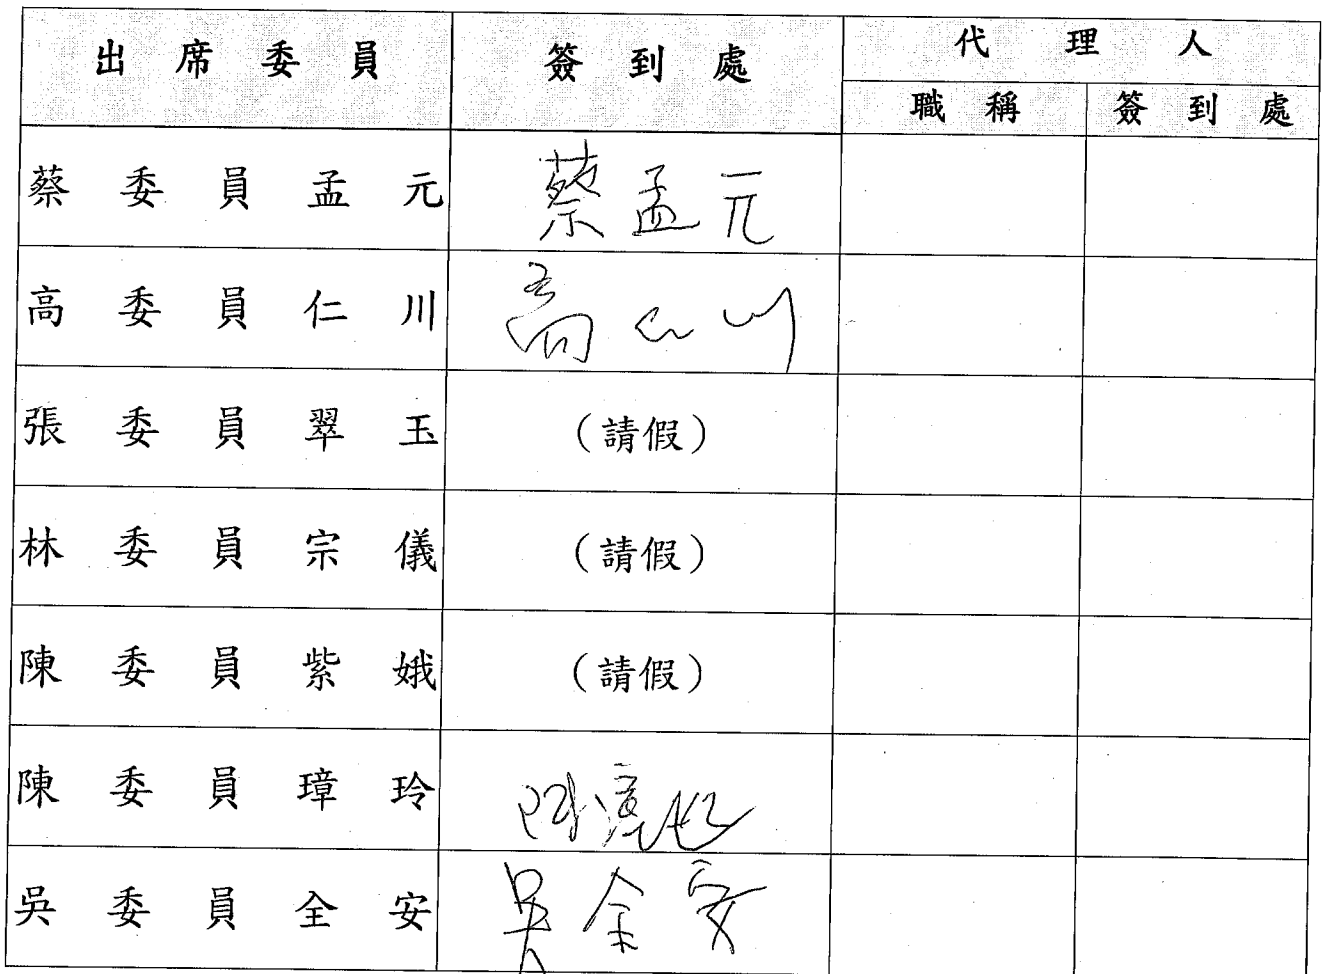 出席委員 簽到處 代理人
職稱 簽到處
蔡委員孟元 蔡孟元
高委員仁川 高仁川
張委員翠玉 (請假)
林委員宗儀 (請假)
陳委員紫娥 (請假)
陳委員璋玲 陳璋玲
吳委員全安 吳全安